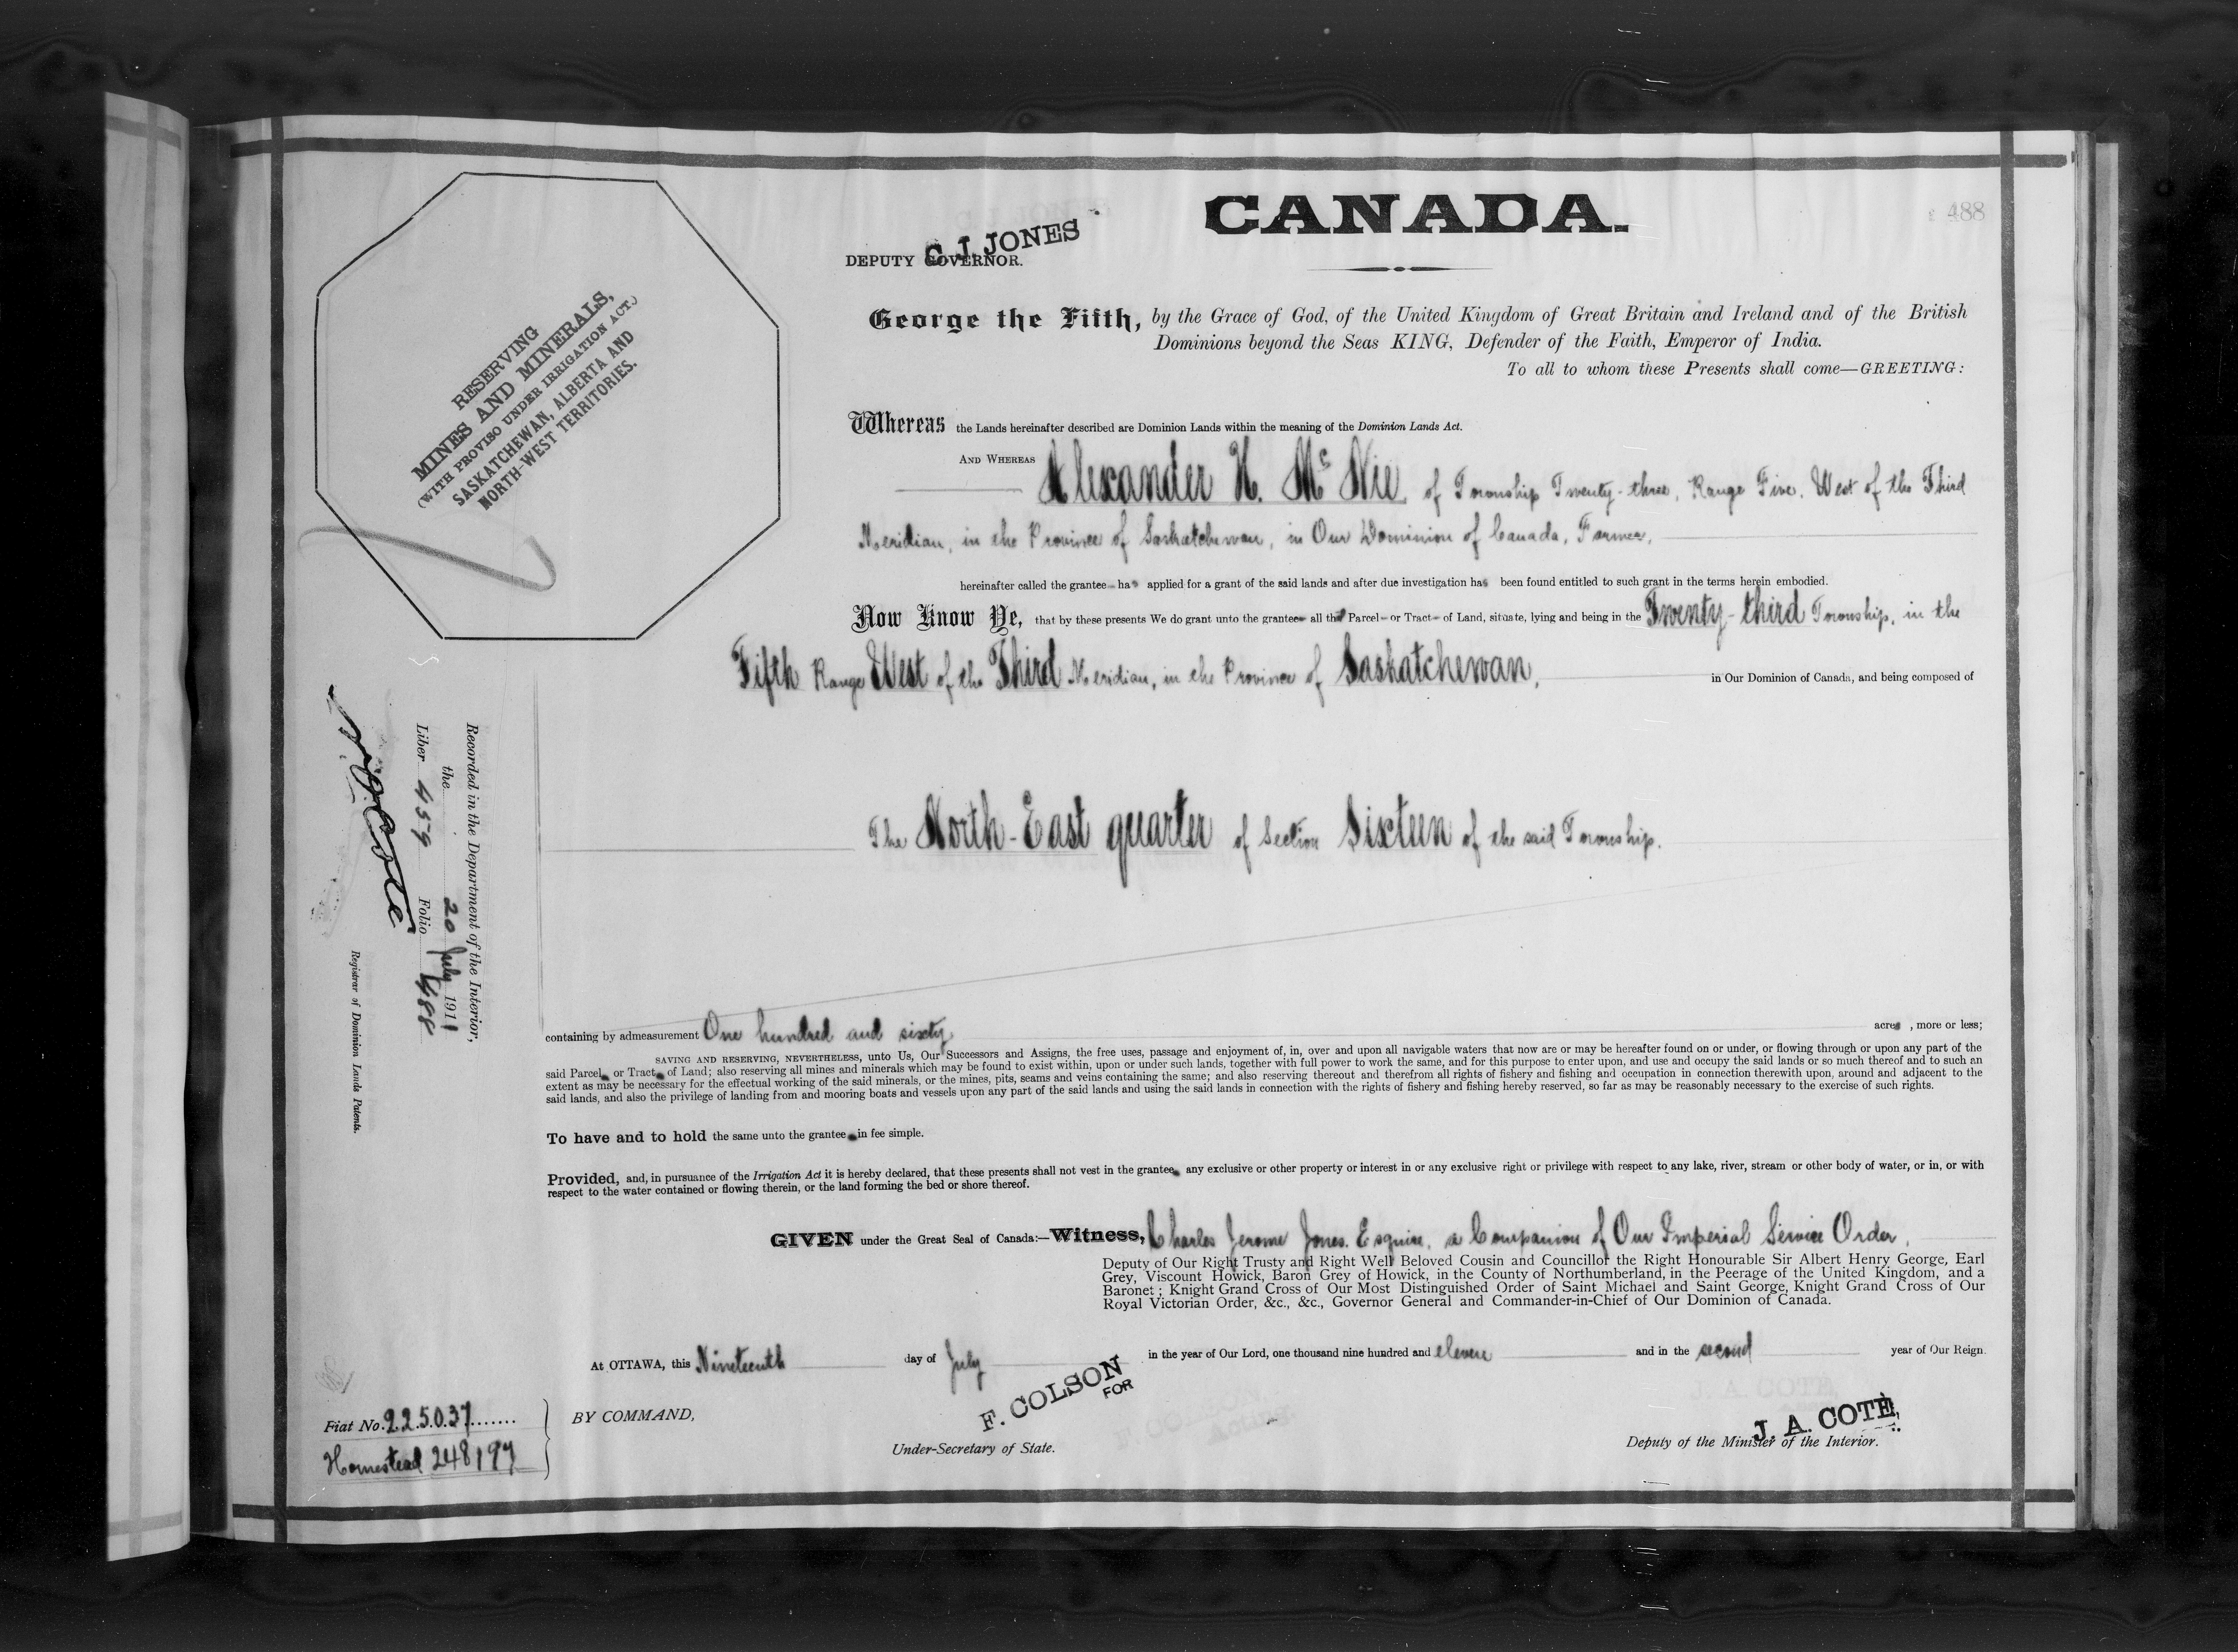 CANADA.
488
C. J. JONES
DEPUTY GOVERNOR.
RESERVING
MINES AND MINERALS,
(WITH PROVISO UNDER IRRIGATION ACT.)
SASKATCHEWAN, ALBERTA AND
NORTH-WEST TERRITORIES.
George the Fifth, by the Grace of God, of the United Kingdom of Great Britain and Ireland and of the British
Dominions beyond the Seas KING, Defender of the Faith, Emperor of India.
To all to whom these Presents shall come—GREETING:
Whereas the Lands hereinafter described are Dominion Lands within the meaning of the Dominion Lands Act.
AND WHEREAS Alexander H. McNie of Township Twenty-three, Range Five, West of the Third
Meridian, in the Province of Saskatchewan, in Our Dominion of Canada, Farmer,
hereinafter called the grantee has applied for a grant of the said lands and after due investigation has been found entitled to such grant in the terms herein embodied.
Now Know Ye, that by these presents We do grant unto the grantee all that Parcel or Tract of Land, situate, lying and being in the Twenty-third Township, in the
Fifth Range West of the Third Meridian, in the Province of Saskatchewan, in Our Dominion of Canada, and being composed of
The North-East quarter of Section Sixteen of the said Township.
containing by admeasurement One hundred and sixty acres, more or less;
SAVING AND RESERVING, NEVERTHELESS, unto Us, Our Successors and Assigns, the free uses, passage and enjoyment of, in, over and upon all navigable waters that now are or may be hereafter found on or under, or flowing through or upon any part of the
said Parcel or Tract of Land; also reserving all mines and minerals which may be found to exist within, upon or under such lands, together with full power to work the same, and for this purpose to enter upon, and use and occupy the said lands or so much thereof and to such an
extent as may be necessary for the effectual working of the said minerals, or the mines, pits, seams and veins containing the same; and also reserving thereout and therefrom all rights of fishery and fishing and occupation in connection therewith upon, around and adjacent to the
said lands, and also the privilege of landing from and mooring boats and vessels upon any part of the said lands and using the said lands in connection with the rights of fishery and fishing hereby reserved, so far as may be reasonably necessary to the exercise of such rights.
To have and to hold the same unto the grantee in fee simple.
Provided, and, in pursuance of the Irrigation Act it is hereby declared, that these presents shall not vest in the grantee any exclusive or other property or interest in or any exclusive right or privilege with respect to any lake, river, stream or other body of water, or in, or with
respect to the water contained or flowing therein, or the land forming the bed or shore thereof.
GIVEN under the Great Seal of Canada:—Witness, Charles Jerome Jones, Esquire, a Companion of Our Imperial Service Order,
Deputy of Our Right Trusty and Right Well Beloved Cousin and Councillor the Right Honourable Sir Albert Henry George, Earl
Grey, Viscount Howick, Baron Grey of Howick, in the County of Northumberland, in the Peerage of the United Kingdom, and a
Baronet; Knight Grand Cross of Our Most Distinguished Order of Saint Michael and Saint George, Knight Grand Cross of Our
Royal Victorian Order, &c., &c., Governor General and Commander-in-Chief of Our Dominion of Canada.
At OTTAWA, this Nineteenth day of July in the year of Our Lord, one thousand nine hundred and eleven and in the second year of Our Reign.
BY COMMAND,
F. COLSON
FOR
Under-Secretary of State.
J. A. COTE,
Deputy of the Minister of the Interior.
Fiat No. 225037
Homestead 248197
Recorded in the Department of the Interior,
the 20 July 1911
Liber 459 Folio 488
N. O. Cote
Registrar of Dominion Lands Patents.